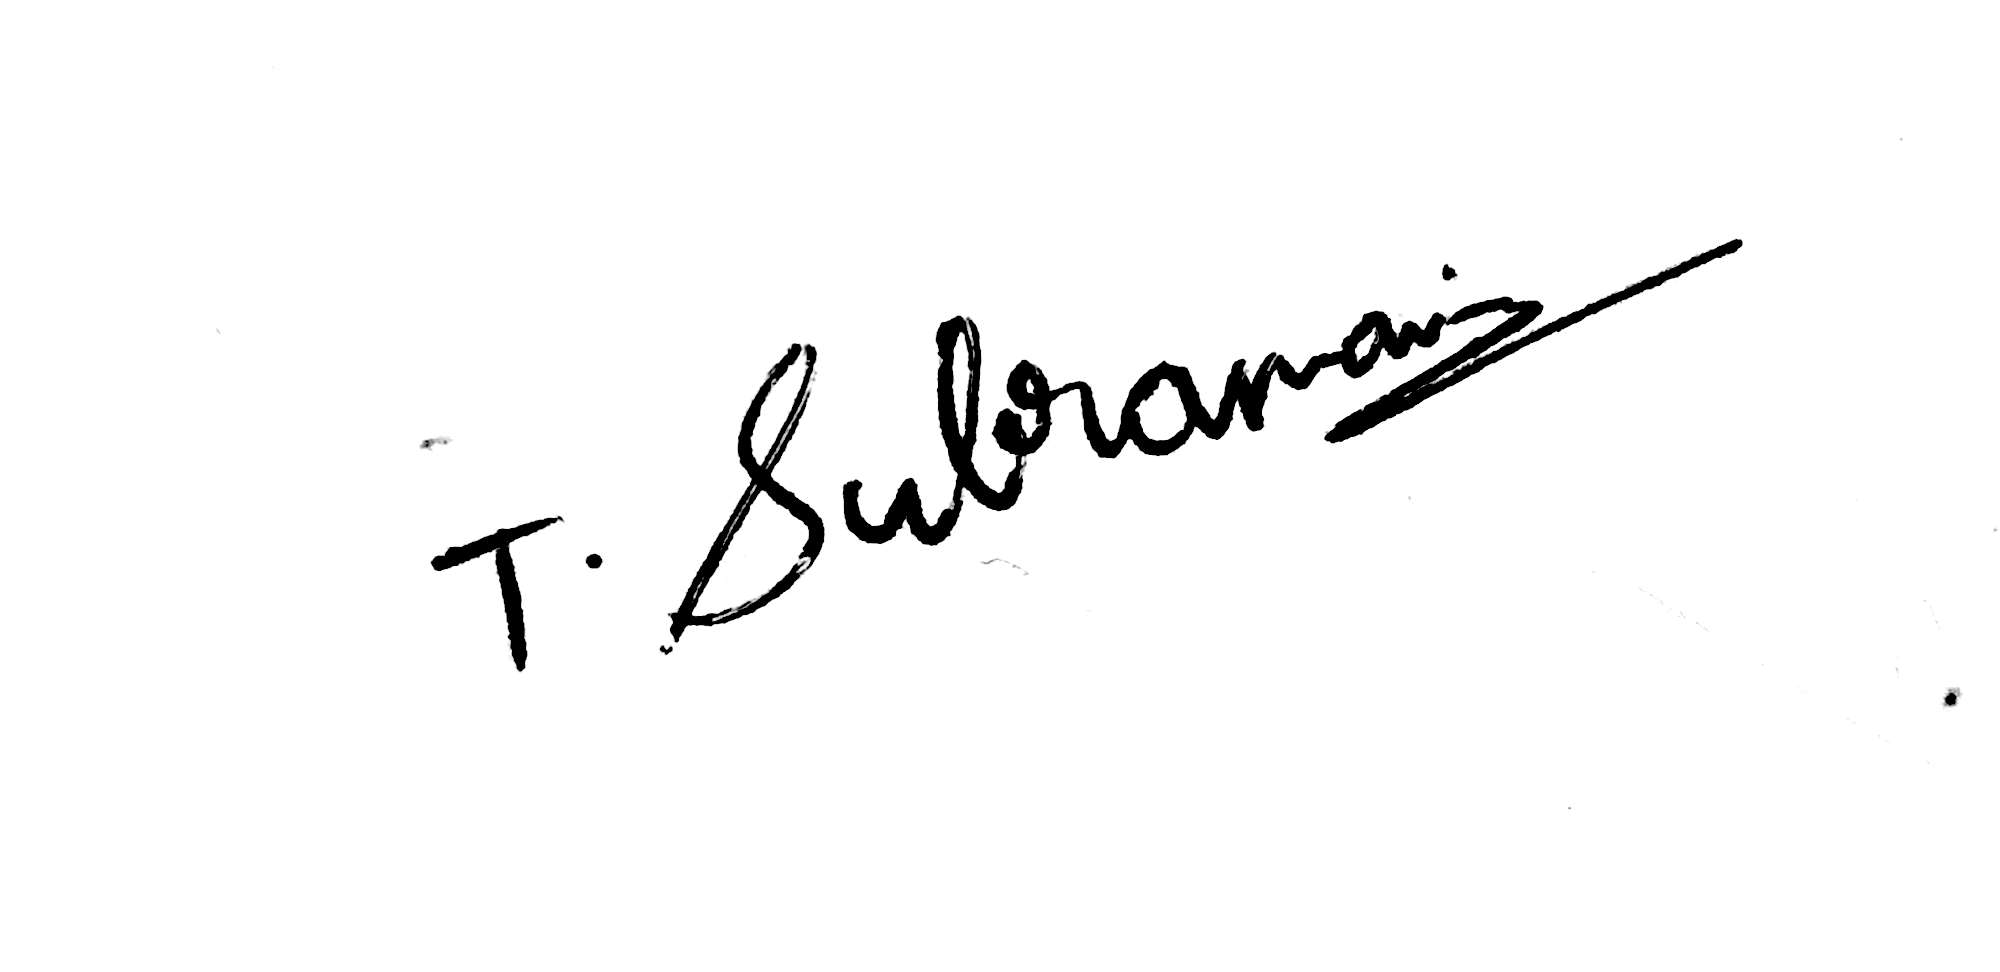 T. Subramani